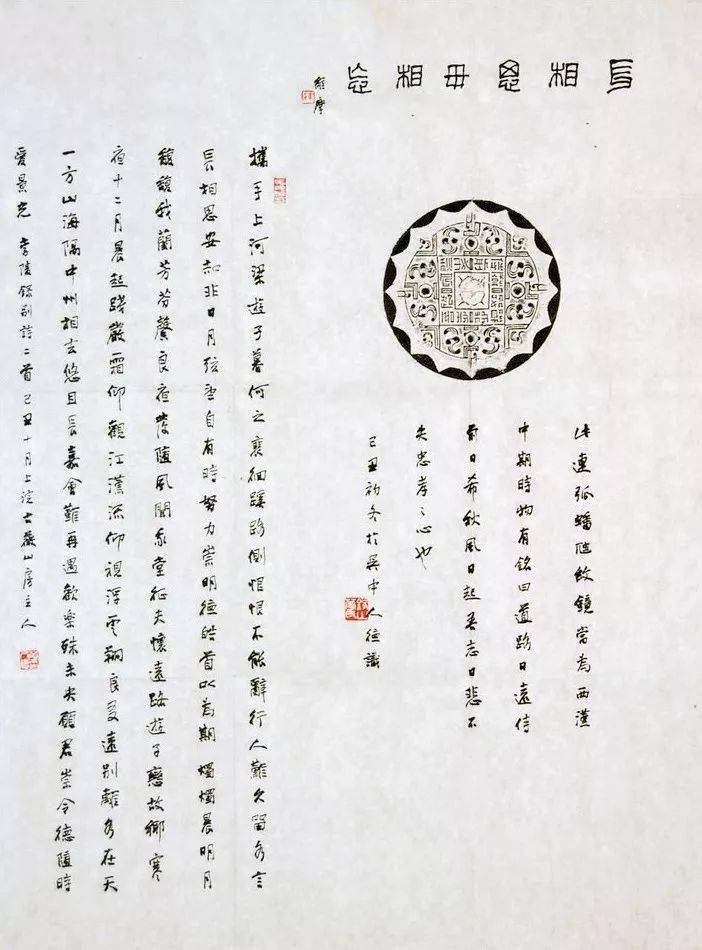 長相思毋相忘
維摩
此連弧蟠虺紋鏡當為西漢
中期時物有銘曰道路日遠侍
前日希秋風日起吾志日悲不
失忠孝之心也
己丑初冬於吳中人德識
攜手上河梁遊子暮何之裵徊蹊路側恨恨不能辭行人難久留各言
長相思安知非日月弦望自有時努力崇明德皓首以為期燭燭晨明月
馥馥我蘭芳芬馨良夜發隨風聞我堂征夫懷遠路遊子戀故鄉寒
夜十二月晨起踐嚴霜仰觀江漢流仰視浮雲翔良友遠別離各在天
一方山海隔中州相去悠且長嘉會難再遇歡樂殊未央願君崇令德隨時
愛景光 李陵錄別詩二首己丑十月上浣古藤山房主人